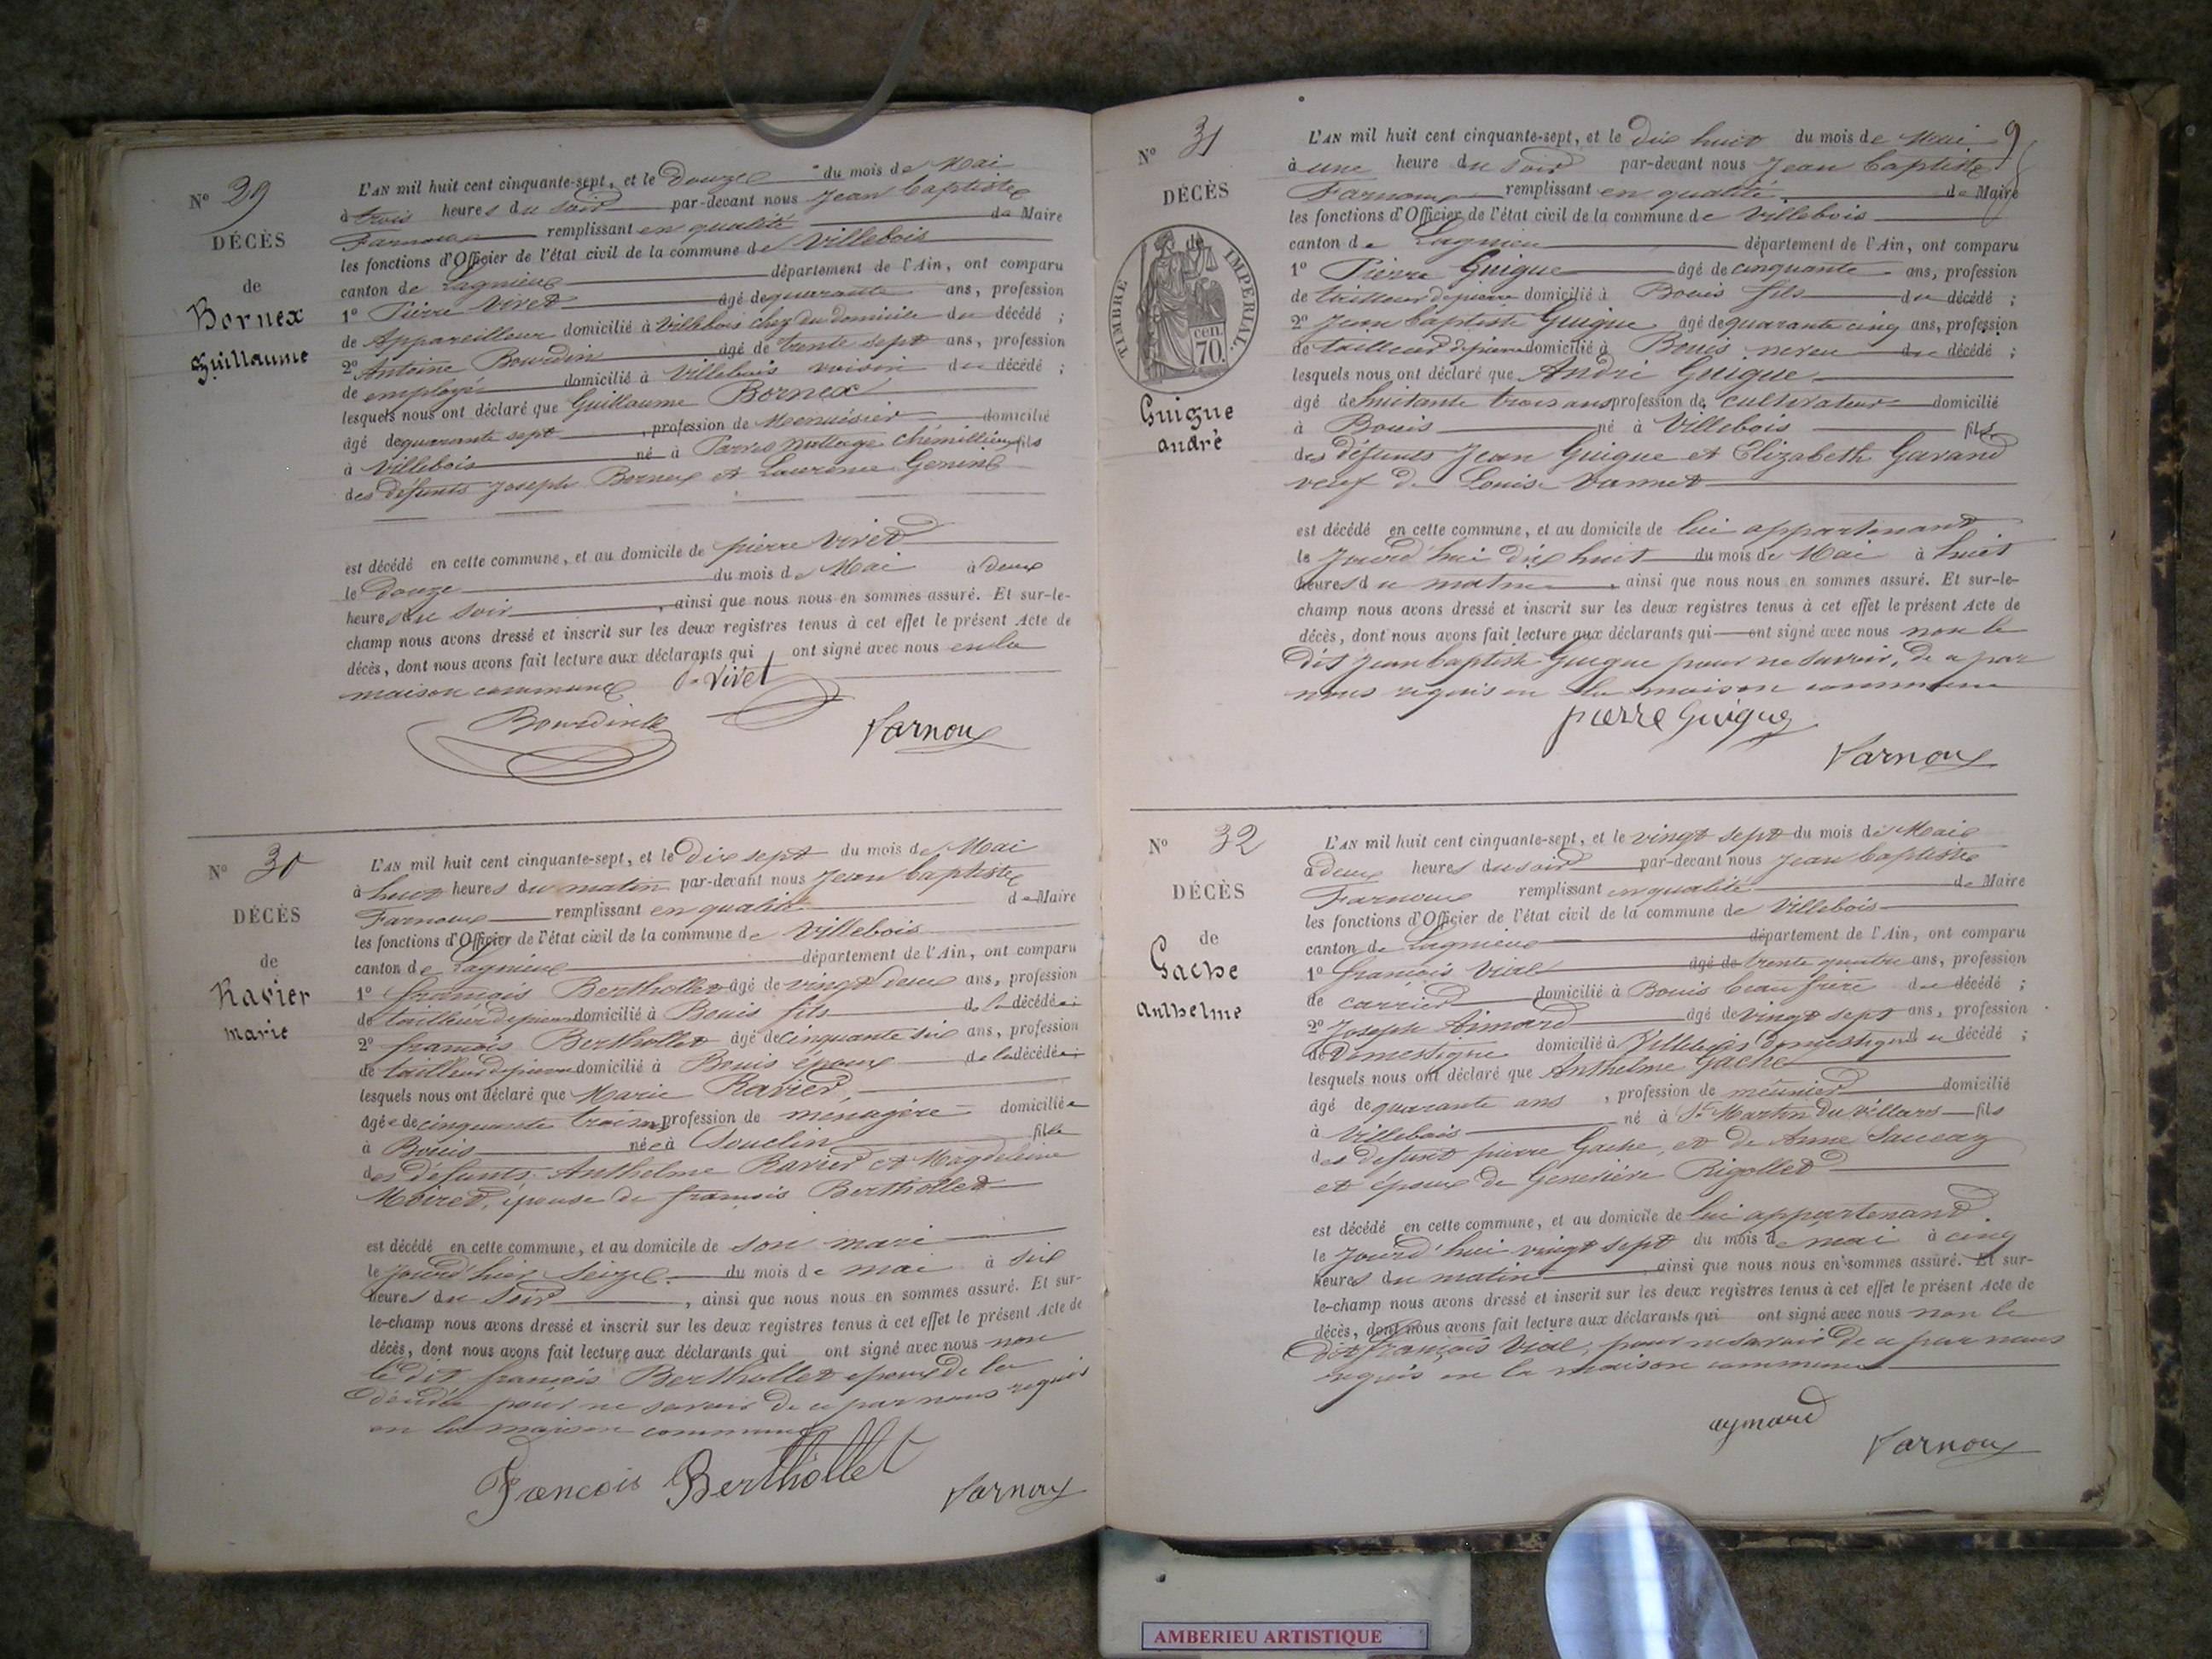 N° 29
DÉCÈS
de
Bornex
Guillaume
L'AN mil huit cent cinquante-sept, et le douze du mois de Mai
à trois heures du soir par-devant nous Jean Baptiste
Farnoux remplissant en qualité de Maire
les fonctions d'Officier de l'état civil de la commune de Villebois
canton de Lagnieux département de l'Ain, ont comparu
1° Pierre Vivet âgé de quarante ans, profession
de Appareilleur domicilié à Villebois chez du domicile du décédé ;
2° Antoine Bourdin âgé de trente sept ans, profession
de employé domicilié à Villebois voisin du décédé ;
lesquels nous ont déclaré que Guillaume Bornex
âgé de quarante sept, profession de Menuisier domicilié
à Villebois né à Chémillieu fils
des défunts Joseph Bornex et Laurence Genin
est décédé en cette commune, et au domicile de pierre Vivet
le Douze du mois de Mai à deux
heures du soir, ainsi que nous nous en sommes assuré. Et sur-le-
champ nous avons dressé et inscrit sur les deux registres tenus à cet effet le présent Acte de
décès, dont nous avons fait lecture aux déclarants qui ont signé avec nous en la
maison commune
Vivet
Farnoux
N° 30
DÉCÈS
de
Ravier
marie
L'AN mil huit cent cinquante-sept, et le dix sept du mois de Mai
à huit heures du matin par-devant nous Jean baptiste
Farnoux remplissant en qualité de Maire
les fonctions d'Officier de l'état civil de la commune de Villebois
canton de Lagnieux département de l'Ain, ont comparu
1° françois Berthollet âgé de vingt deux ans, profession
de tailleur de pierre domicilié à Bouis fils de la décédée
2° françois Berthollet âgé de cinquante six ans, profession
de tailleur de pierre domicilié à Bouis époux de la décédée
lesquels nous ont déclaré que Marie Ravier,
âgée de cinquante trois ans profession de menagère domiciliée
à Bouis née à Souclin fille
des défunts Anthelme Ravier et Magdeleine
Moiret, épouse de françois Berthollet
est décédé en cette commune, et au domicile de son mari
le jourd'hier seize du mois de mai à six
heures du soir, ainsi que nous nous en sommes assuré. Et sur-
le-champ nous avons dressé et inscrit sur les deux registres tenus à cet effet le présent Acte de
décès, dont nous avons fait lecture aux déclarants qui ont signé avec nous non
le dit françois Berthollet époux de la
décédée pour ne savoir de ce par nous requis
en la maison commune
Francois Berthollet
Farnoux
9
N° 31
DÉCÈS
de
TIMBRE IMPERIAL.
cen.
70.
Guigue
andré
L'AN mil huit cent cinquante-sept, et le dix huit du mois de Mai
à une heure du soir par-devant nous Jean baptiste
Farnoux remplissant en qualité de Maire
les fonctions d'Officier de l'état civil de la commune de Villebois
canton de Lagnieu département de l'Ain, ont comparu
1° Pierre Guigue âgé de cinquante ans, profession
de tailleur de pierre domicilié à Bouis fils du décédé ;
2° Jean baptiste Guigue âgé de quarante cinq ans, profession
de tailleur de pierre domicilié à Bouis neveu du décédé ;
lesquels nous ont déclaré que André Guigue
âgé de huitante trois ans profession de cultivateur domicilié
à Bouis né à Villebois fils
des défunts Jean Guigue et Elizabeth Gavand
veuf de Louise
est décédé en cette commune, et au domicile de lui appartenant
le jourd'hui dix huit du mois de Mai à huit
heures du matin, ainsi que nous nous en sommes assuré. Et sur-le-
champ nous avons dressé et inscrit sur les deux registres tenus à cet effet le présent Acte de
décès, dont nous avons fait lecture aux déclarants qui ont signé avec nous non le
dit Jean baptiste Guigue pour ne savoir, de ce par
nous requis en la maison commune
pierre Guigue
Farnoux
N° 32
DÉCÈS
de
Gache
anthelme
L'AN mil huit cent cinquante-sept, et le vingt sept du mois de Mai
à deux heures du soir par-devant nous Jean baptiste
Farnoux remplissant en qualité de Maire
les fonctions d'Officier de l'état civil de la commune de Villebois
canton de Lagnieux département de l'Ain, ont comparu
1° françois Vial âgé de trente quatre ans, profession
de carrier domicilié à Bouis beau frère du décédé ;
2° Joseph Aimard âgé de vingt sept ans, profession
de Domestique domicilié à Villebois domestique du décédé ;
lesquels nous ont déclaré que Anthelme Gache
âgé de quarante ans, profession de meunier domicilié
à Villebois né à St Martin du Villars fils
des defunt pierre Gache, et de Anne
et époux de Geneviève Rigollet
est décédé en cette commune, et au domicile de lui appartenant
le jourd'hui vingt sept du mois de mai à cinq
heures du matin ainsi que nous nous en sommes assuré. Et sur-
le-champ nous avons dressé et inscrit sur les deux registres tenus à cet effet le présent Acte de
décès, dont nous avons fait lecture aux déclarants qui ont signé avec nous non le
dit françois Vial, pour ne savoir de ce par nous
requis en la maison commune
aymard
Farnoux
AMBERIEU ARTISTIQUE